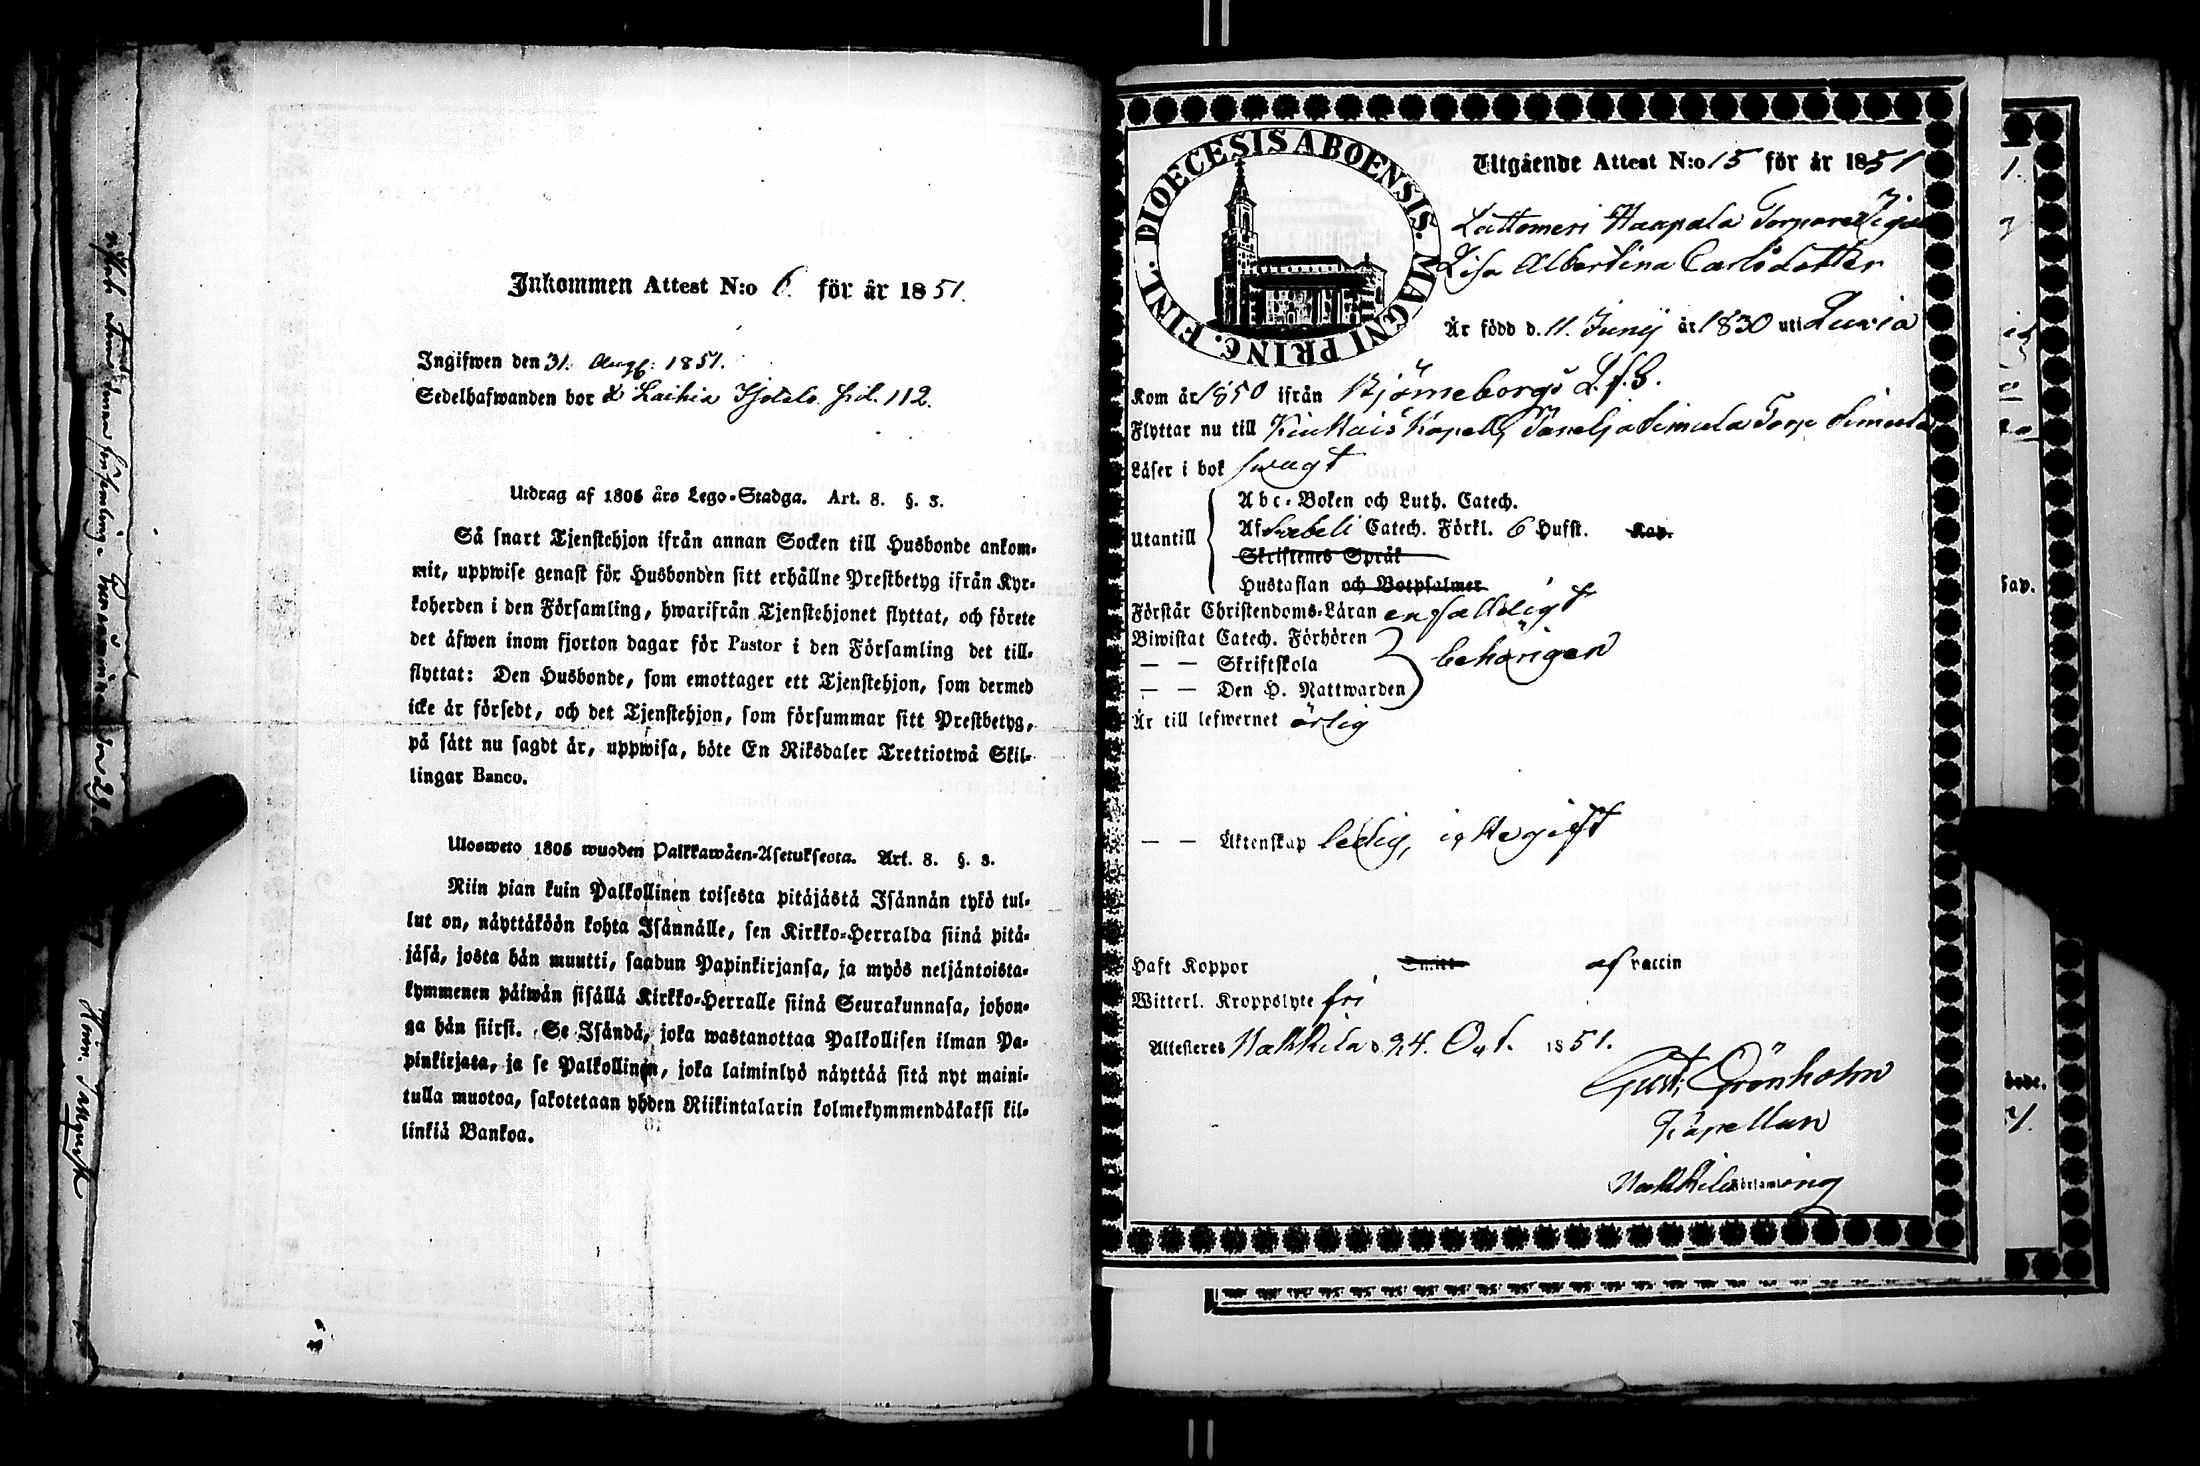 Inkommen Attest N:o 6. för år 1851.
Ingifwen den 31. Augs: 1851.
Sedelhafwanden bor å Laihia Isotalo pid. 112.
Utdrag af 1805 års Lego-Stadga. Art. 8. §. 3.
Så snart Tjenstehjon ifrån annan Socken till Husbonde ankom-
mit, uppwise genast för Husbonden sitt erhållne Prestbetyg ifrån Kyr-
koherden i den Församling, hwarifrån Tjenstehjonet flyttat, och förete
det äfwen inom fjorton dagar för Pastor i den Församling det till-
flyttat: Den Husbonde, som emottager ett Tjenstehjon, som dermed
icke är försedt, och det Tjenstehjon, som försummar sitt Prestbetyg,
på sätt nu sagdt är, uppwisa, böte En Riksdaler Trettiotwå Skil-
lingar Banco.
Ulosweto 1805 wuoden Palkkawäen-Asetuksesta. Art. 8. §. 3.
Niin pian kuin Palkollinen toisesta pitäjästä Isännän tykö tul-
lut on, näyttäköön kohta Isännälle, sen Kirkko-Herralda siinä pitä-
jäsä, josta hän muutti, saadun Papinkirjansa, ja myös neljäntoista-
kymmenen päiwän sisällä Kirkko-Herralle siinä Seurakunnasa, johon-
ga hän siirsi. Se Isändä, joka wastanottaa Palkollisen ilman Pa-
pinkirjata, ja se Palkollinen, joka laiminlyö näyttää sitä nyt maini-
tulla muotoa, sakotetaan yhden Riikintalarin kolmekymmendäkaksi kil-
linkiä Bankoa.
DIOECESIS ABOENSIS. MAGNI PRINC. FINL.
Utgående Attest N:o 15 för år 1851
Lattomeri Haapala Torpare Piga
Lisa Albertina Carlsdotter
Är född d. 11. Junij år 1830 uti Luvia
Kom år 1850 ifrån Björneborgs L.f.G.
Flyttar nu till Kiukais Kapell, Paneljа Simula Torp Simula
Läser i bok swagt
Utantill
Abc-Boken och Luth. Catech.
Af Svebeli Catech. Förkl. 6 Hufst. Kap.
Skriftenes Språk
Hustaflan och Botpsalmer
Förstår Christendoms-Läran enfalldeligt
Biwistat Catech. Förhören
— — Skriftskola behörigen
— — Den H. Nattwarden
Är till lefwernet ärlig
— — Äktenskap ledig, icke gift
Haft Koppor af vaccin
Witterl. Kroppslyte fri
Attesteres Nakkila d. 24. Oct. 1851.
Gust: Grönholm
Kapellan
Nakkila Församling